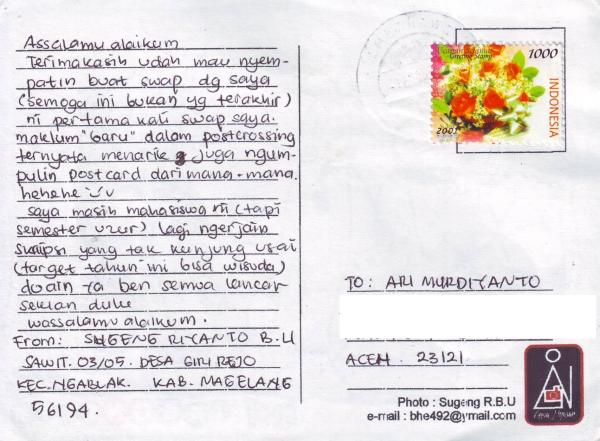 Assalamu alaikum
Terimakasih udah mau nyem-
patin buat swap dg saya
(semoga ini bukan yg terakhir)
ni pertama kali swap saya.
maklum "baru" dalam postcrossing
ternyata menarik juga ngum-
pulin postcard dari mana-mana.
hehehe
saya masih mahasiswa ni (tapi
semester uzur) lagi ngerjain
skripsi yang tak kunjung usai
(target tahun ini bisa wisuda)
doain ya ben semua lancar
sekian dulu
wassalamu alaikum.
From: SUGENG RIYANTO B.U
SAWIT. 03/05. DESA GIRI REJO
KEC. NGABLAK. KAB. MAGELANG
56194.
Greeting Stamp
1000
INDONESIA
TO: ARI MURDIYANTO
ACEH. 23121
Photo : Sugeng R.B.U
e-mail : bhe492@ymail.com